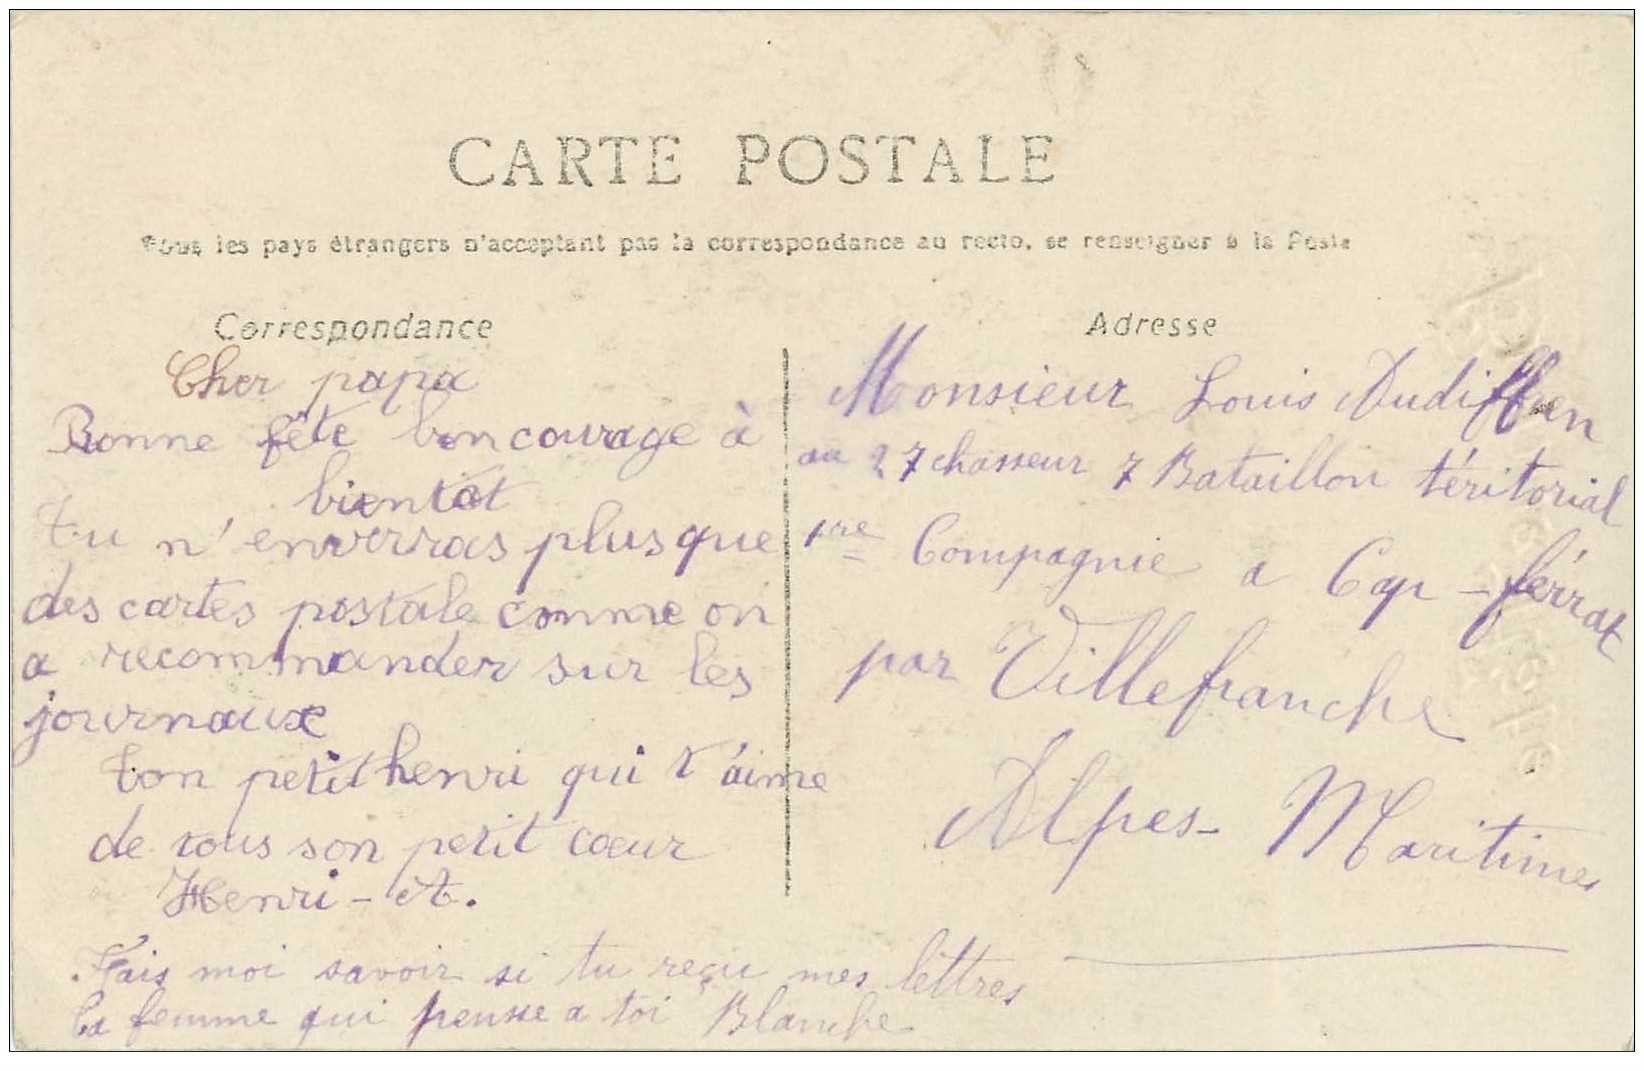 CARTE POSTALE
Tous les pays étrangers n'acceptant pas la correspondance au recto, se renseigner à la Poste
Correspondance
Cher papa
Bonne fête bon courage à
bientôt
tu n'enverras plus que
des cartes postale comme on
a recommander sur les
journaux
ton petit henri qui t'aime
de tous son petit cœur
Henri - A.
Fais moi savoir si tu reçu mes lettres
la femme qui pense a toi Blanche
Adresse
Monsieur Louis Audiffren
au 27 chasseur 7 Bataillon téritorial
1re Compagnie a Cap - férrat
par Villefranche
Alpes - Maritimes